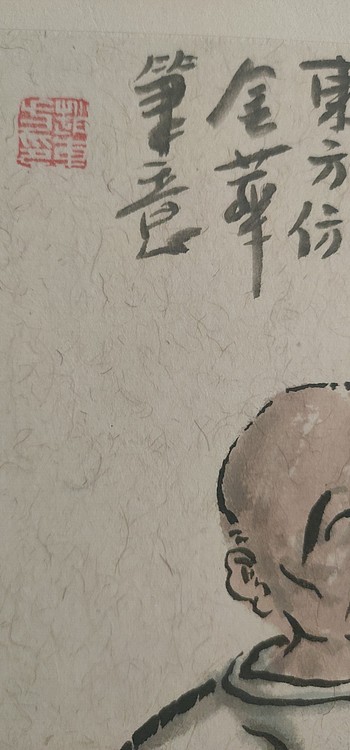 東方仿
金華
筆意